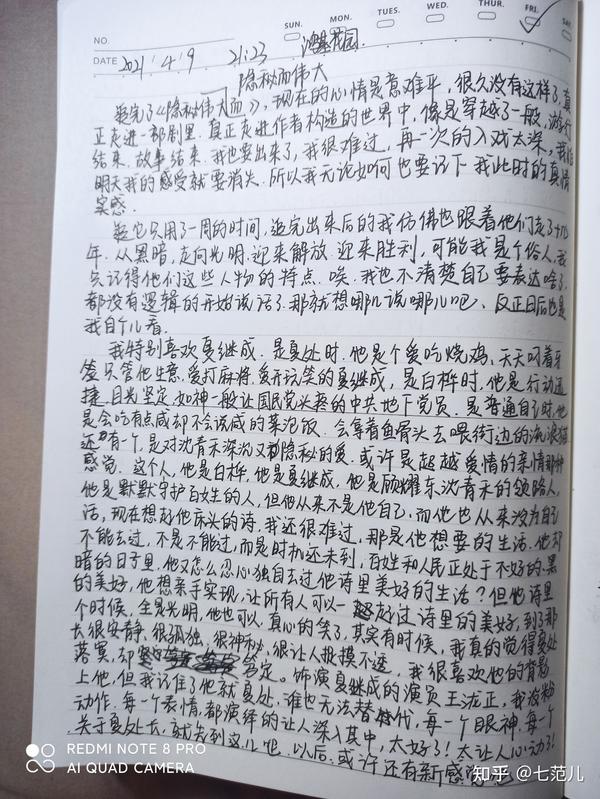 SUN. MON. TUES. WED. THUR. FRI. SA
NO.
DATE 2021 4 9 21:23 鸿基花园.
隐秘而伟大
追完了《隐秘而伟大》, 现在的心情是意难平, 很久没有这样了, 真
正走进一部剧里. 真正走进作者构造的世界中, 像是穿越了一般, 游行
结束. 故事结束. 我也要出来了, 我很难过, 再一次的入戏太深, 我怕
明天我的感受就要消失. 所以我无论如何也要记下我此时的真情
实感.
追也只用了一周的时间, 追完出来后的我仿佛也跟着他们走了十几
年. 从黑暗, 走向光明. 迎来解放. 迎来胜利, 可能我是个俗人, 我
只记得他们这些人物的特点. 唉. 我也不清楚自己要表达啥了.
都没有逻辑的开始说话了. 那就想哪儿说哪儿吧、反正日后也是
我自个儿看.
我特别喜欢夏继成. 是夏处时. 他是个爱吃烧鸡、天天叼着牙
签只管他生意. 爱打麻将. 爱开玩笑的夏继成, 是白桦时. 他是行动迅
捷. 目光坚定. 如神一般让国民党头疼的中共地下党员. 是普通自己时. 他
是会吃有点咸却不会说咸的菜泡饭. 会拿着鱼骨头去喂街边的流浪猫
还有一个, 是对沈青禾深沉又隐秘的爱. 或许是超越爱情的亲情那种
感觉. 这个人, 他是白桦, 他是夏继成. 他是顾耀东. 沈青禾的领路人,
他是默默守护百姓的人, 但他从来不是他自己. 而他也从来没为自己
活, 现在想起他床头的诗. 我还很难过, 那是他想要的生活. 他却
不能去过, 不是不能过, 而是时机还未到, 百姓和人民正处于不好的. 黑
暗的日子里. 他又怎么忍心独自去过他诗里美好的生活? 但他诗里
的美好, 他想亲手实现, 让所有人可以一起过诗里的美好, 到了那
个时候, 全是光明, 他也可以真心的笑了, 其实有时候, 我真的觉得夏处
长很安静、很孤独、很神秘, 很让人捉摸不透. 我很喜欢他的背影
落寞, 却 坚定. 饰演夏继成的演员王泷正, 我没粉
上他, 但我记住了他就夏处, 谁也无法替代, 每一个眼神, 每一个
动作. 每一个表情, 都演绎的让人深入其中, 太好了! 太让人心动了!
关于夏处长, 就去到这儿吧. 以后. 或许还有新感觉吧
REDMI NOTE 8 PRO
AI QUAD CAMERA
知乎 @七范儿